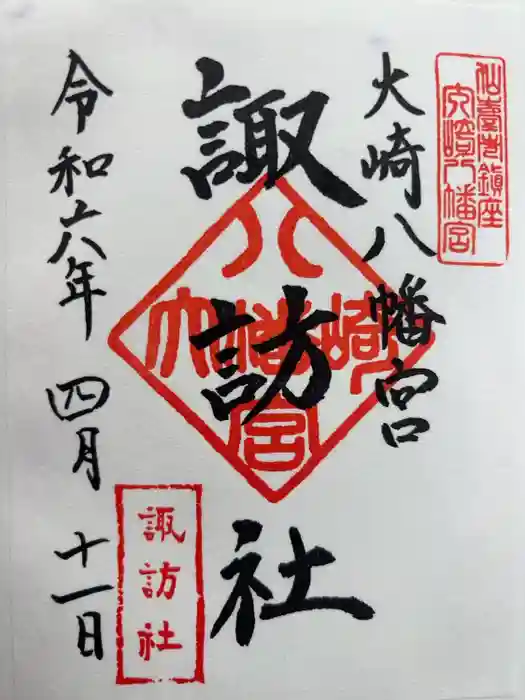 仙臺市鎮座
大崎八幡宮
大崎八幡宮
諏訪社
大崎八幡宮
諏訪社
令和六年 四月 十一日